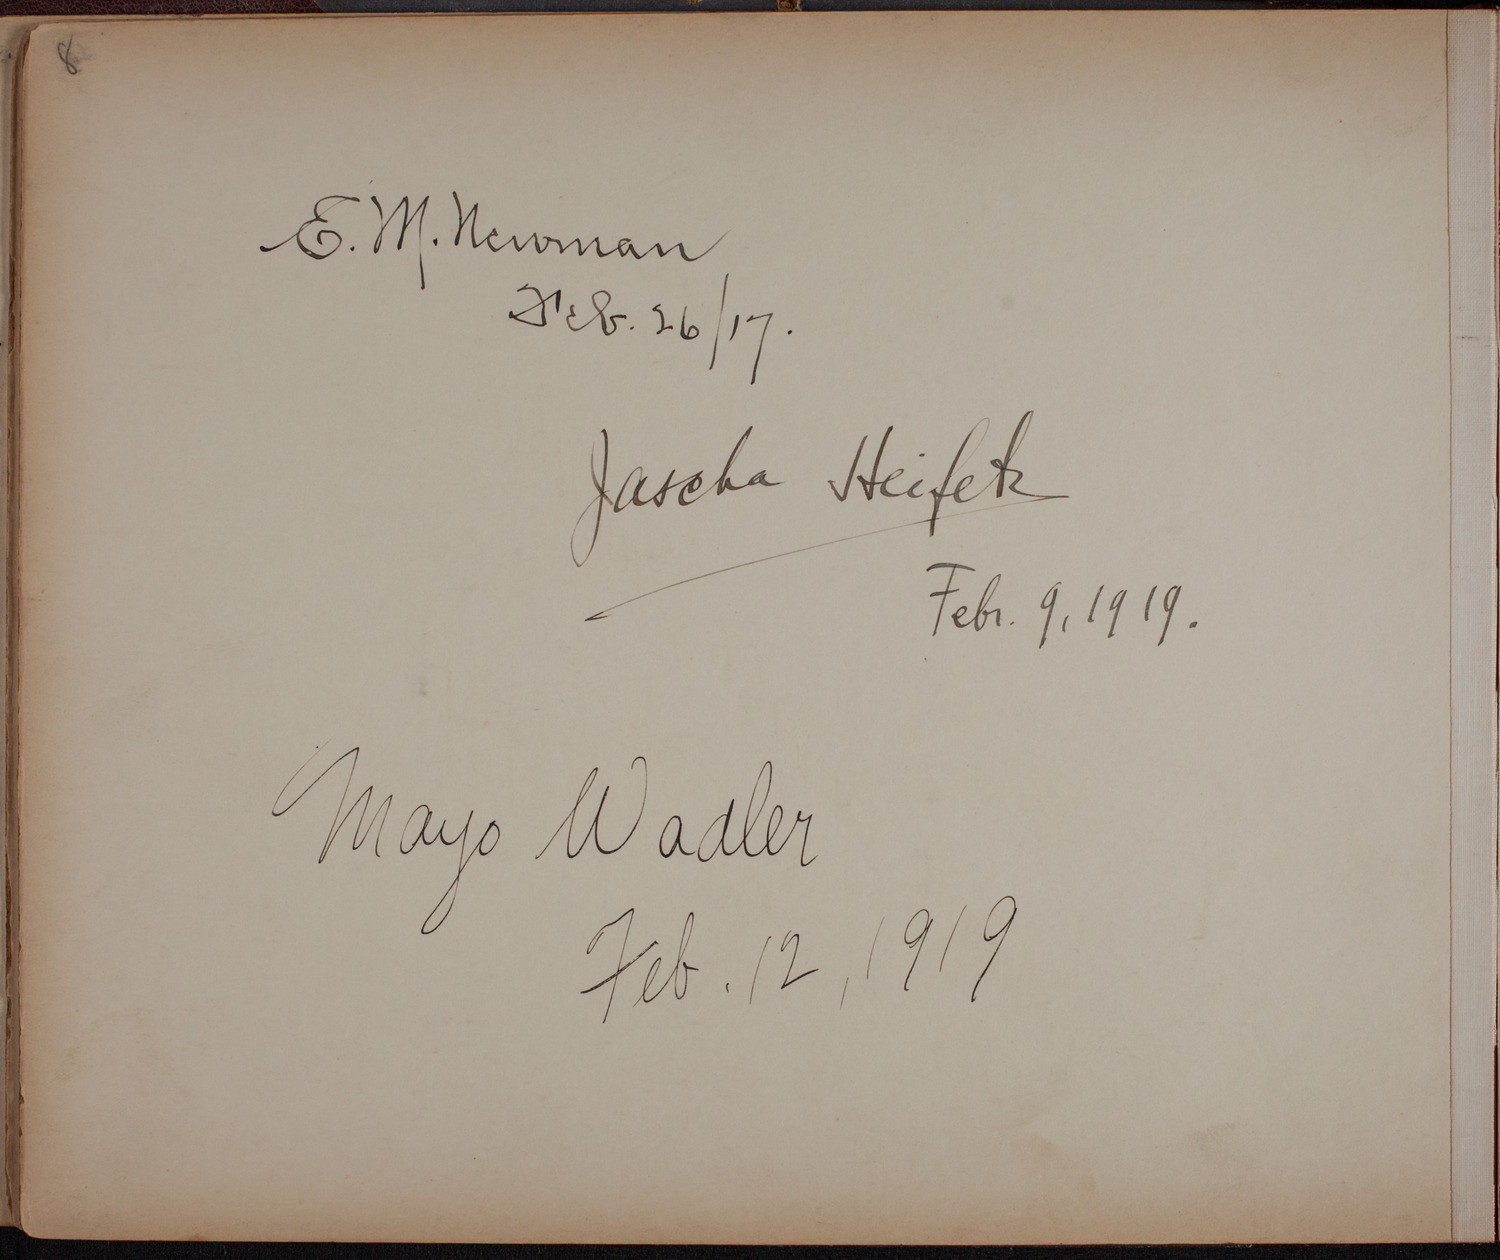 8
E. M. Newman
Feb. 26/17.
Jascha Heifetz
Febr. 9, 1919.
Mayo Wadler
Feb. 12, 1919